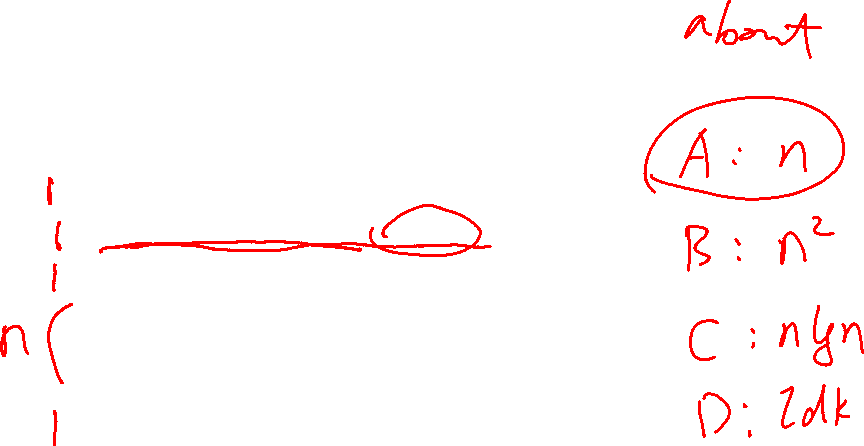 about
A: n
B: n²
C: n lg n
D: Idk
n